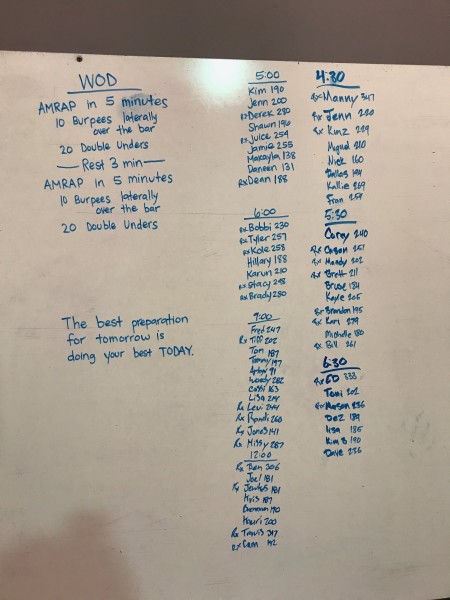 WOD
AMRAP in 5 minutes
10 Burpees laterally
over the bar
20 Double Unders
Rest 3 min
AMRAP in 5 minutes
10 Burpees laterally
over the bar
20 Double Unders
The best preparation
for tomorrow is
doing your best TODAY.
5:00
Kim 190
Jenn 200
Rx Derek 280
Shawn 196
Rx Juice 254
Jamie 255
Makayla 138
Daneen 131
Rx Dean 188
6:00
Rx Bobbi 230
Rx Tyler 257
Rx Kole 258
Hillary 188
Karun 210
Rx Stacy 298
Rx Brady 280
9:00
Fred 247
Rx Tiff 202
Tom 187
Tammy 197
91
Woody 282
Cassi 163
Lisa 204
Rx Levi 244
Rx Randi 260
Rx Jones 141
Rx Missy 287
12:00
Rx Ben 306
Joel 181
Rx 181
Kris 187
190
200
Rx Travis 317
Rx Cam 142
4:30
Rx Manny 347
Rx Jenn 220
Rx Kinz 299
Miguel 210
Nick 160
Dallas 194
Kallie 269
Fran 254
5:30
Corey 240
Rx 257
Rx Mandy 202
Rx Brett 211
Bruce 184
Kayle 205
Rx Brandon 195
Rx Kari 279
Michelle 180
Rx Bill 261
6:30
Rx ED 333
Tomi 202
Rx Mason 236
Dez 189
Lisa 185
Kim B 190
Dave 256